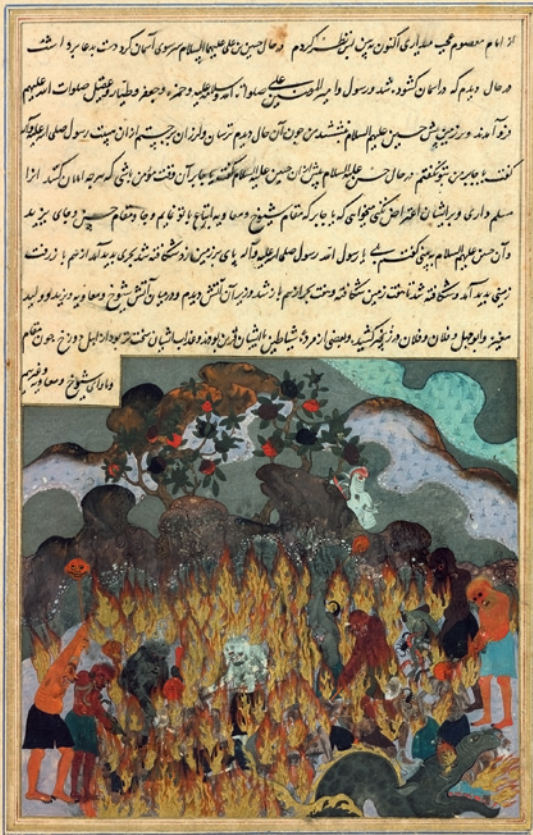 از امام معصوم عجب میداری اکنون بین این نظر کردم در حال حسین بن علی علیهما السلام سر سوی آسمان کرد دست بدعا برداشت
در حال دیدم که در آسمان کشوده شد و رسول و امیر المؤمنین علی صلوات الله و سلامه علیه و حمزه و جعفر و طیار و عقیل صلوات الله علیهم
فرو آمدند و بر زمین پیش حسین علیهم السلام بنشستند من چون آن حال دیدم ترسان و لرزان برجستم از آن هیبت رسول صلی الله علیه و آله
گفت یا جابر من بتو نگفتم در حال حسن علیه السلام پیش از آن حسین علیه السلام گفت یا جابر آن وقت مؤمن باشی که هرچه امامان کنند آنرا
مسلم داری و بر ایشان اعتراض نکنی میخواهی که یا جابر که مقام شیوخ و معاویه اتباع با تو نمایم و جاه و مقام حسین و جای یزید
و آن حسن علیهم السلام به بینی گفتم بلی یا رسول الله رسول صلی الله علیه و آله پای بر زمین زد و شکافته شد بحری بدید آمد از هم باز رفت
زمینی بدید آمد و شکافته شد تا هفت زمین شکافته و هفت بحر از هم باز شد و زیر آن آتش دیدم و در میان آتش شیوخ و معاویه و یزید و ولید
مغیره و ابوجهل و فلان و فلان در زنجیر کشیده و بعضی از مرده شیاطین با ایشان قرین بودند و عذاب ایشان سخت تر بود از اهل دوزخ چون مقام
و مأوای شیوخ و معاویه و غیرهم